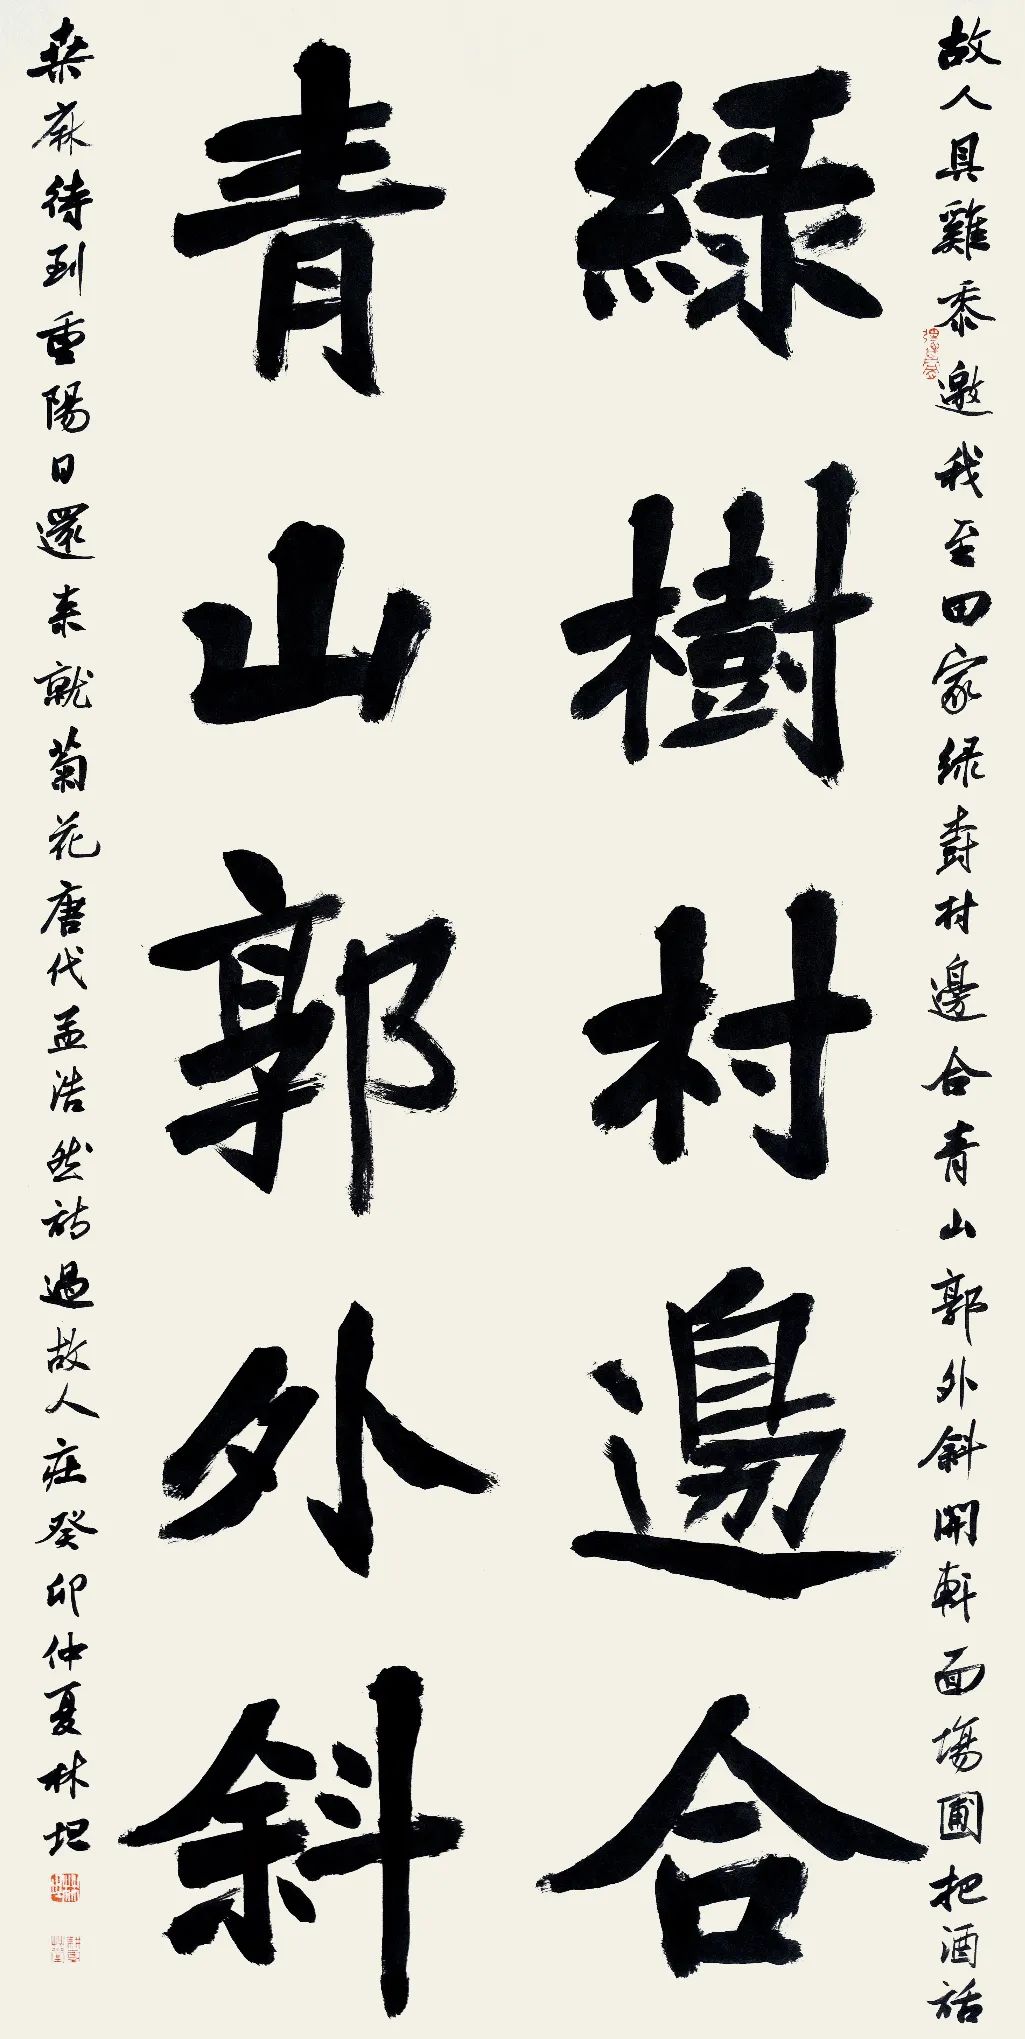 故人具雞黍邀我至田家綠樹村邊合青山郭外斜開軒面場圃把酒話
綠樹村邊合
青山郭外斜
桑麻待到重陽日還来就菊花唐代孟浩然詩過故人莊癸卯仲夏林坦